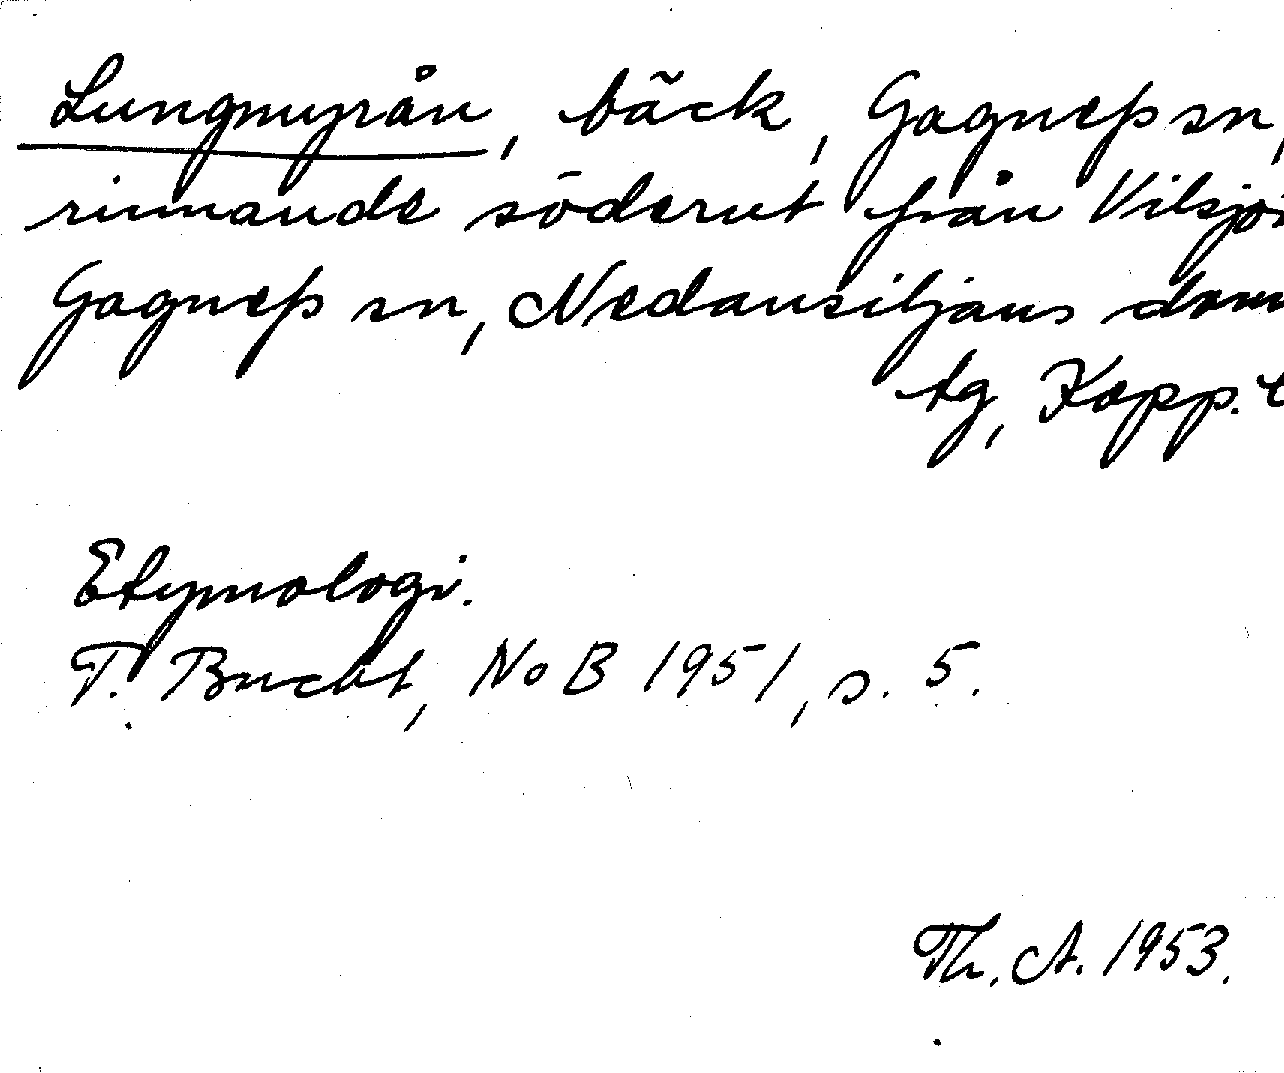 Lungmyrån, bäck, Gagnef sn,
rinnande söderut från Vilsjö
Gagnef sn, Nedansiljans dom
tg, Kopp.
Etymologi.
T. Bucht, NoB 1951, s. 5.
Th. A. 1953.